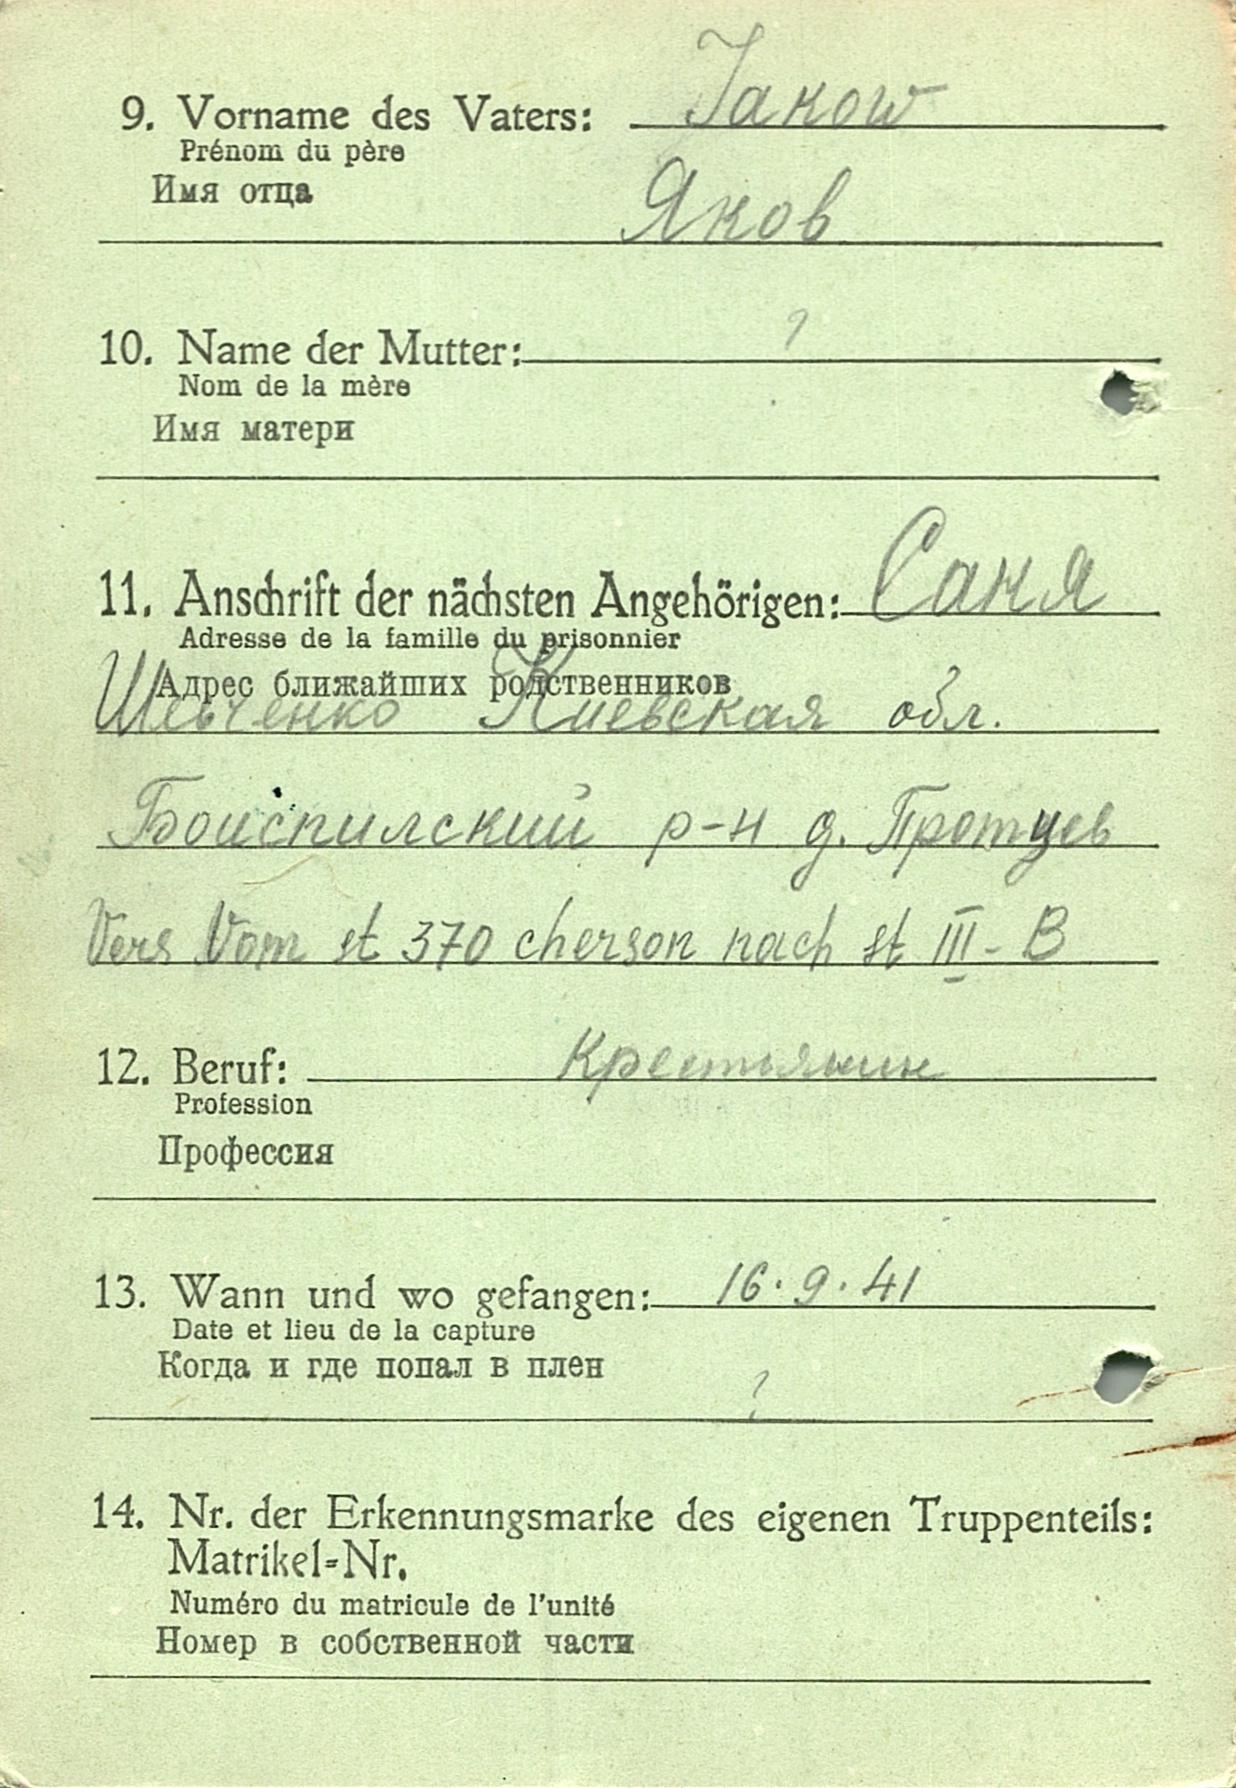 9. Vorname des Vaters: Jakow
Prénom du père
Имя отца
Яков
10. Name der Mutter: ?
Nom de la mère
Имя матери
11. Anschrift der nächsten Angehörigen: Саня
Adresse de la famille du prisonnier
Адрес ближайших родственников
Шевченко Киевская обл.
Боиспилский р-н д. Протцев
Vers Vom st 370 cherson nach st III-B
12. Beruf: Крестянин
Profession
Профессия
13. Wann und wo gefangen: 16.9.41
Date et lieu de la capture
Когда и где попал в плен
?
14. Nr. der Erkennungsmarke des eigenen Truppenteils:
Matrikel-Nr.
Numéro du matricule de l'unité
Номер в собственной части